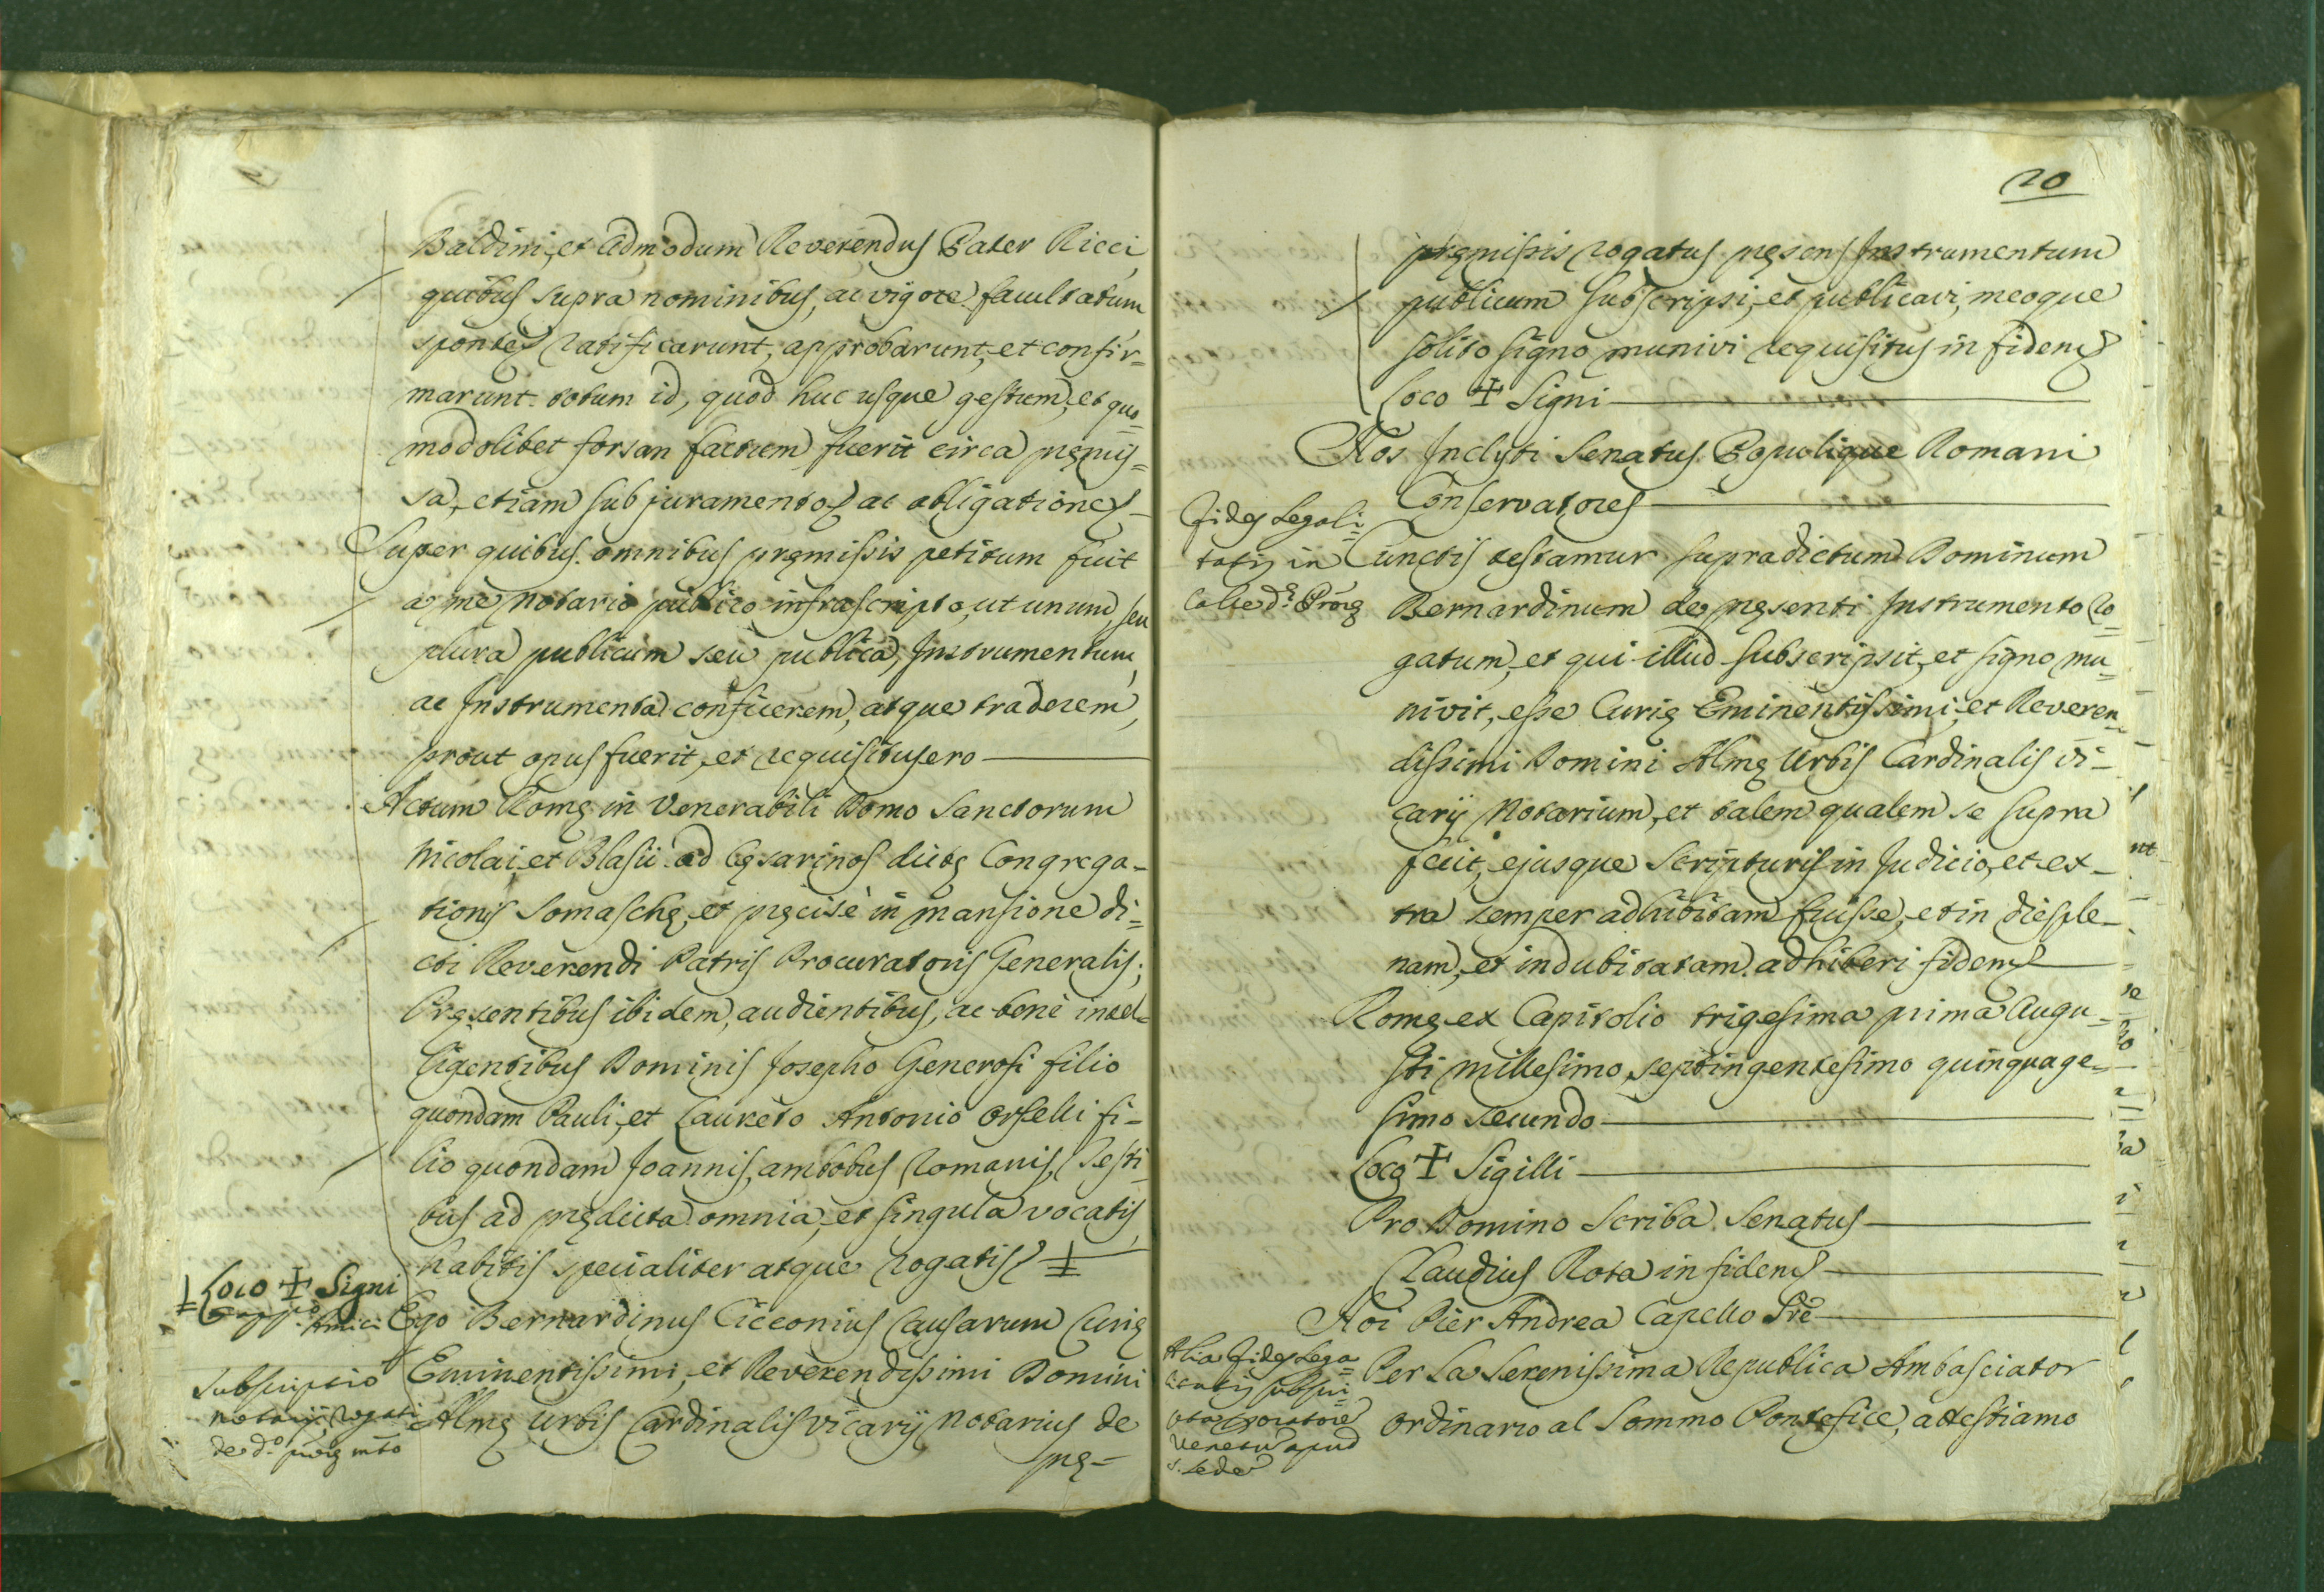 Baldini, et Admodum Reverendus Pater Ricci
quibus supra nominibus, ac vigore facultatum
sponte ratificarunt, approbarunt, et confir=
marunt totum id, quod huc usque gestum, et quo=
modolibet forsan factum fuerit circa pręmis=
sa, etiam sub juramento, ac obligatione
Super quibus omnibus pręmissis petitum fuit
a me Notario publico infrascripto, ut unum, seu
plura publicum seu publica, Instrumentum,
ac Instrumenta conficerem, atque traderem,
prout opus fuerit, et requisitus ero
Actum Romę in Venerabili Domo Sanctorum
Nicolai, et Blasii ad Cęsarinos dictę Congrega=
tionis Somaschę, et pręcisè in mansione di=
cti Reverendi Patris Procuratoris Generalis;
Pręsentibus ibidem, audientibus, ac benè intel=
ligentibus Dominis Josepho Generosi filio
quondam Pauli, et Laureto Antonio Orselli fi=
lio quondam Joannis, ambobus Romanis, Testi=
bus ad prędicta omnia, et singula vocatis,
habitis specialiter atque rogatis
Loco ✝ Signi
Ego Bernardinus Cicconius Causarum Curię
Subscriptio
Eminentissimi, et Reverendissimi Domini
notarij rogati
Almę Urbis Cardinalis Vicarij Notarius de
de d.º
prę=
20
pręmissis rogatus pręsens Instrumentum
publicum subscripsi, et publicavi, meoque
solito signo munivi requisitus in fidem
Loco ✝ Signi
Nos Inclyti Senatus Populique Romani
Conservatores
Fides Legali=
tatis in
Cunctis testamur supradictum Dominum
Bernardinum de pręsenti Instrumento ro=
gatum, et qui illud subscripsit, et signo mu=
nivit, esse Curię Eminentissimi, et Reveren=
dissimi Domini Almę Urbis Cardinalis Vi=
carij Notarium, et talem qualem se supra
fecit, ejusque Scripturis in Judicio, et ex=
tra semper adhibitam fuisse, et in dies ple=
nam, et indubitatam adhiberi fidem
Romę ex Capitolio trigesima prima Augu=
sti millesimo septingentesimo quinquage=
simo secundo
Loco ✝ Sigilli
Pro Domino Scriba Senatus
Claudius Rota in fidem
Noi Pier Andrea Capello
Alia Fides Lega=
litatis
Oratore
Veneto apud
S. Sede
Per La Serenissima Republica Ambasciator
Ordinario al Sommo Pontefice, attestiamo